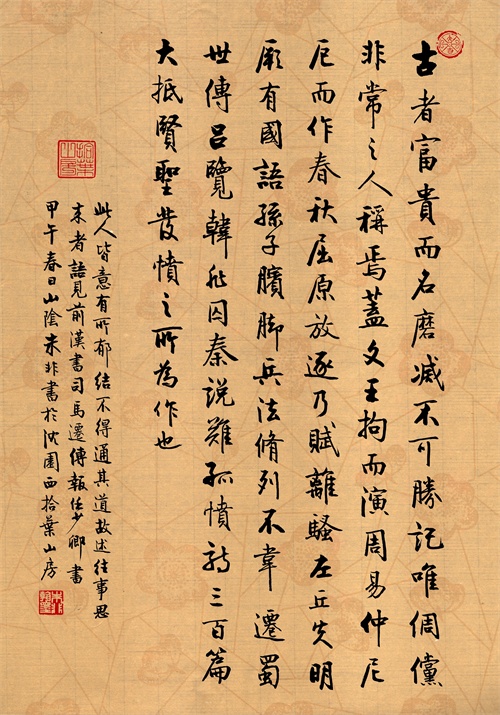 古者富貴而名磨滅不可勝記唯倜儻
非常之人稱焉蓋文王拘而演周易仲尼
厄而作春秋屈原放逐乃賦離騷左丘失明
厥有國語孫子臏脚兵法脩列不韋遷蜀
世傳呂覽韓非囚秦說難孤憤詩三百篇
大抵賢聖發憤之所為作也
此人皆意有所郁結不得通其道故述往事思
來者語見前漢書司馬遷傳報任少卿書
甲午春日山陰朱非書於沈園西拾葉山房